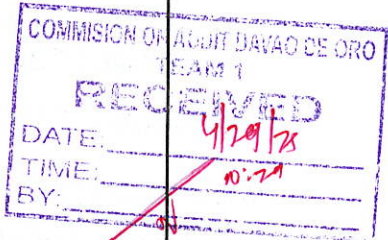 COMMISION ON AUDIT DAVAO DE ORO
TEAM 1
RECEIVED
DATE: 4/29/25
TIME: 10:29
BY: